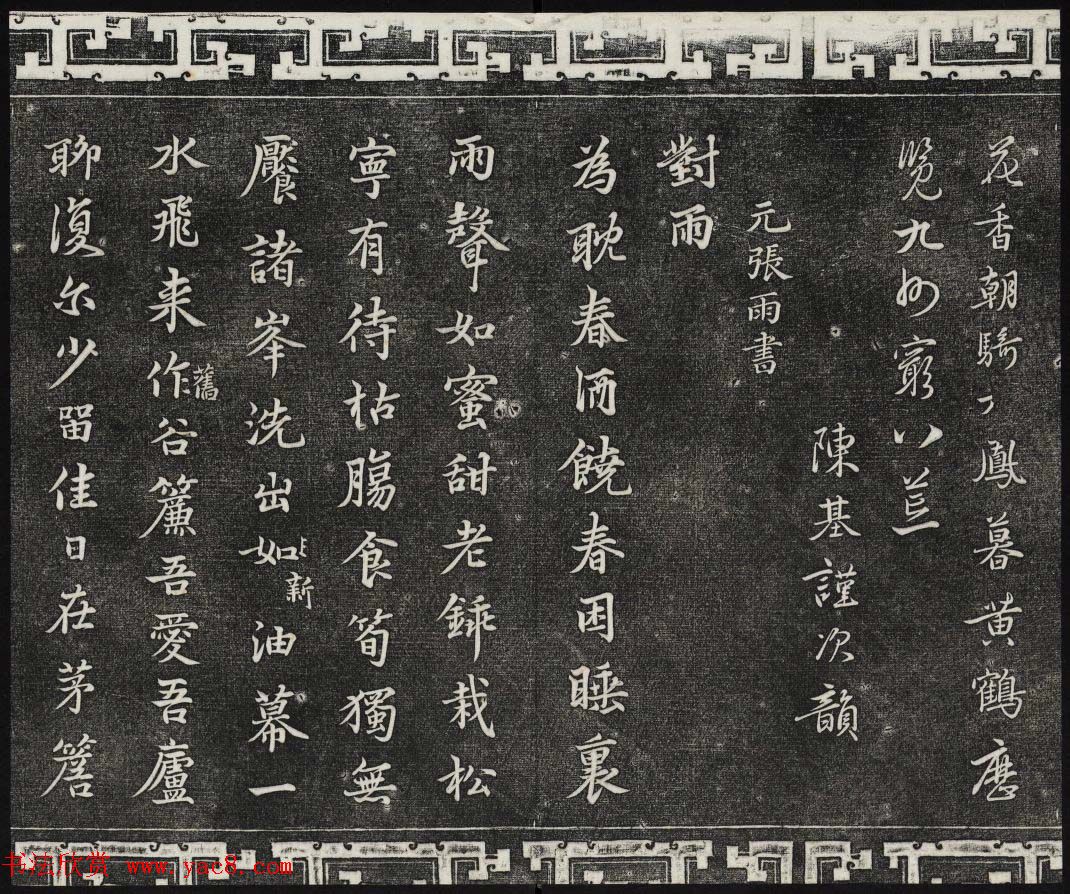 花香朝騎鳳暮黄鶴歷
覽九州窮八荒
陳基謹次韻
元張雨書
對雨
為耽春酒饒春困睡裏
雨聲如蜜甜老栽松
寧有待枯腸食筍獨無
饜諸峯洗出如新油幕一
水飛来作舊谷簾吾愛吾廬
聊復尓少留佳日在茅簷
书法欣赏 www.yac8.com